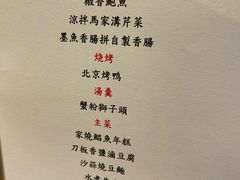 椒香鮑魚
涼拌馬家溝芹菜
墨魚香腸拼自製香腸
燒烤
北京烤鴨
湯羹
蟹粉獅子頭
主菜
家燒鯧魚年糕
刀板香鹽滷豆腐
沙蒜燒豆麵